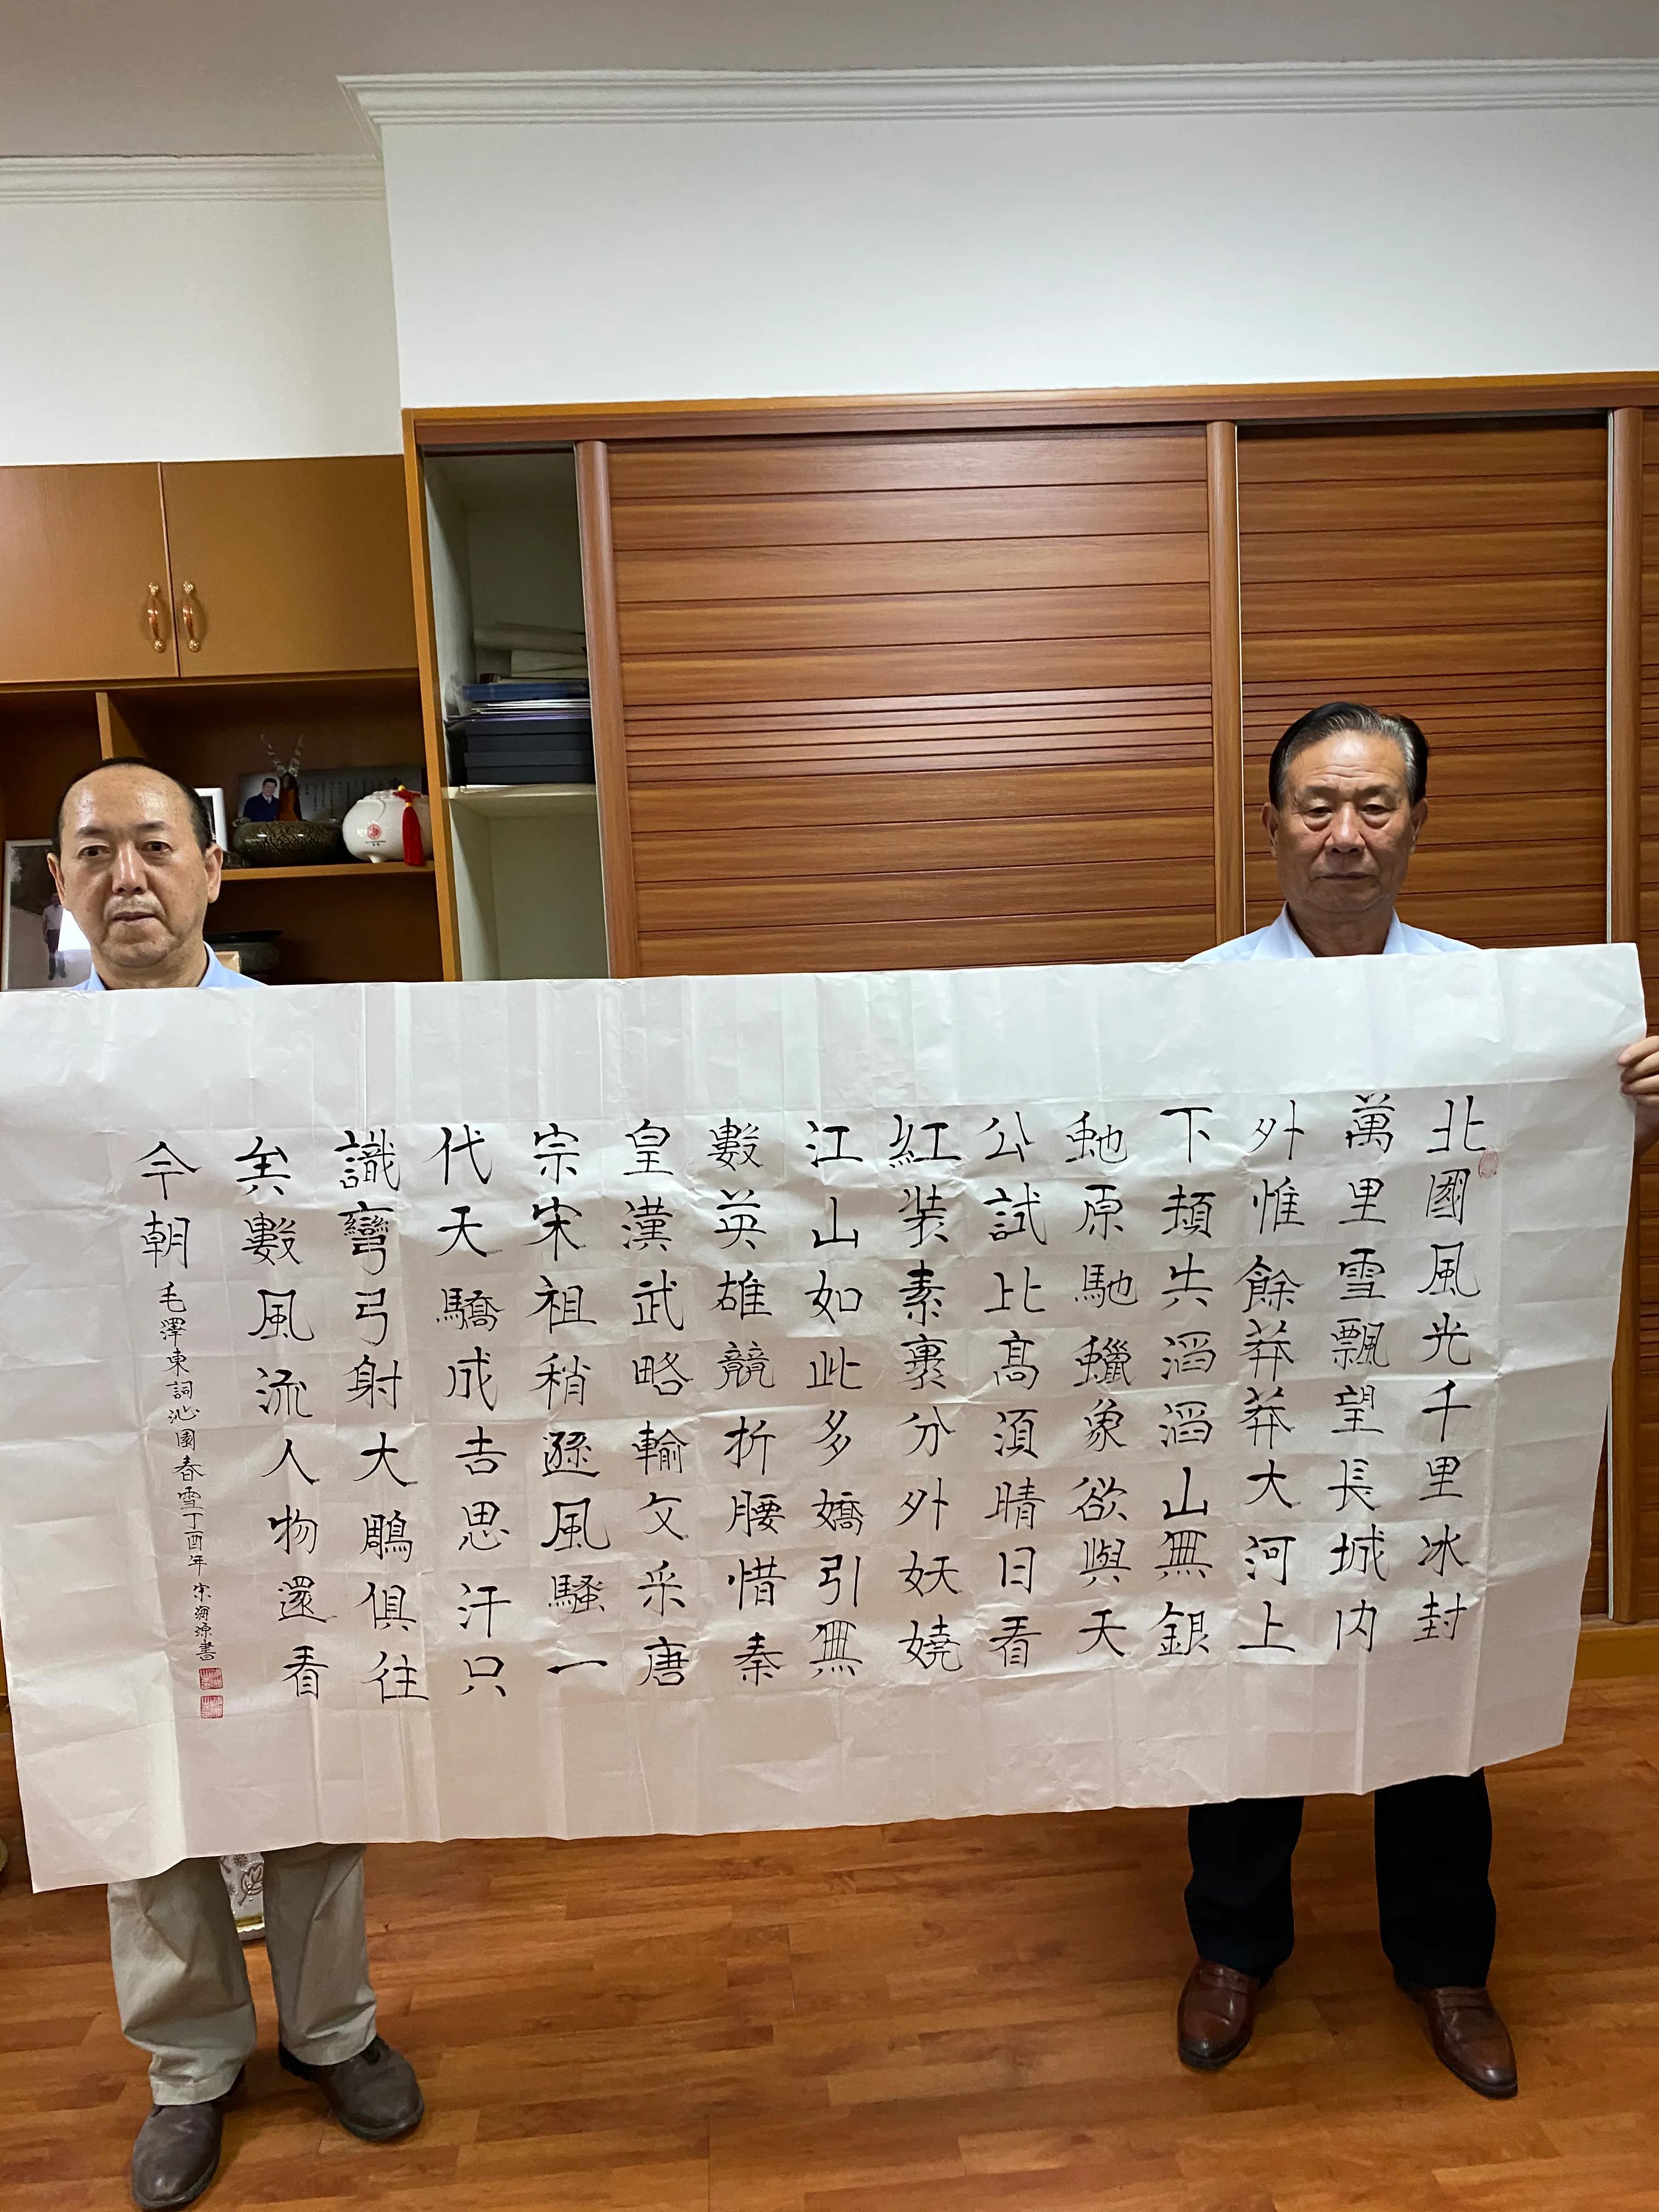 北國風光千里冰封
萬里雪飄望長城内
外惟餘莽莽大河上
下頓失滔滔山無銀
虵原馳蠟象欲與天
公試比高須晴日看
紅裝素裹分外妖嬈
江山如此多嬌引無
數英雄競折腰惜秦
皇漢武略輸文采唐
宗宋祖稍遜風騷一
代天驕成吉思汗只
識彎弓射大鵰俱往
矣數風流人物還看
今朝
毛澤東詞沁園春雪丁酉年宋海源書